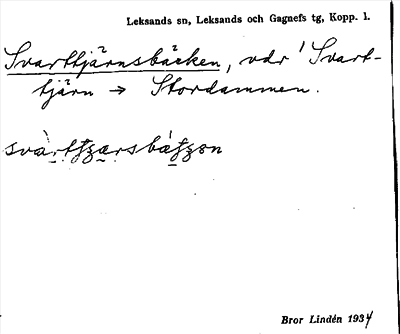 Leksands sn, Leksands och Gagnefs tg, Kopp. l.
Svarttjärnsbäcken, vdr ' Svart-
tjärn → Stordammen.
Bror Lindén 1934